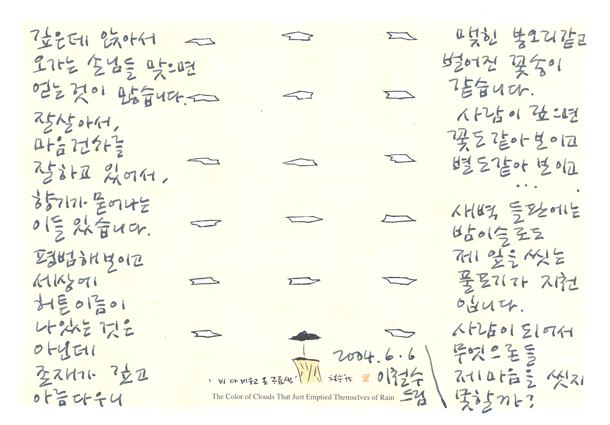 깊은데 앉아서
오가는 손님들 맞으면
얻는 것이 많습니다.
잘살아서,
마음건사를
잘하고 있어서,
향기가 묻어나는
이들 있습니다.
평범해 보이고
세상에
허튼 이름이
나있는 것은
아닌데
존재가 깊고
아름다우니
맺힌 봉오리 같고
벌어진 꽃송이
같습니다.
사람이 깊으면
꽃도 같아 보이고
별도 같아 보이고
...
새벽 들판에는
밤이슬로도
제 잎을 씻는
풀포기가 지천
입니다.
사람이 되어서
무엇으로들
제 마음을 씻지
못할까?
2004.6.6
이철수
드림
'비 다 비우고 온 구름색' 철수
The Color of Clouds That Just Emptied Themselves of Rain